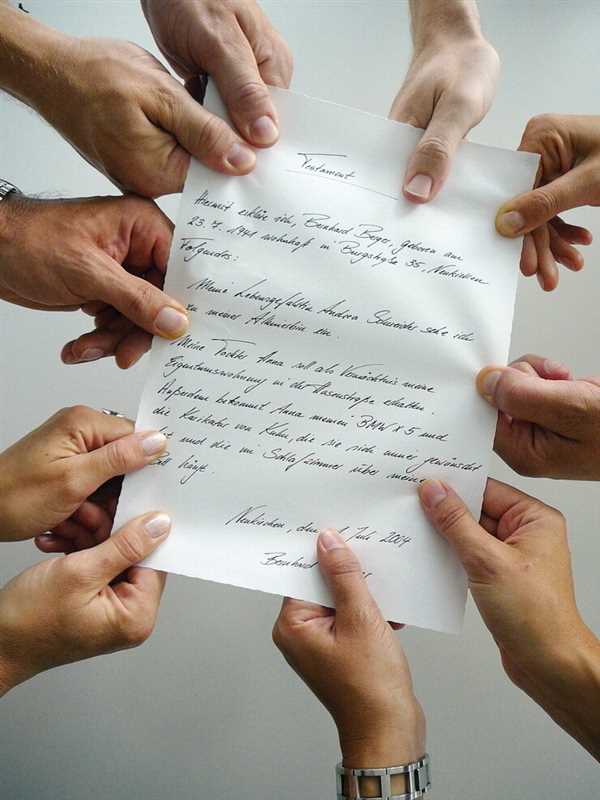 Testament
Hiermit erkläre ich, Bernhard geboren am
23.7.1941 wohnhaft in Burgstraße 35, Neukirchen
Folgendes:
Meine Lebensgefährtin Andrea Schneider setze ich
zu meiner Alleinerbin ein.
Meine Tochter Anna soll als Vermächtnis meine
Eigentumswohnung in der Hasenstraße erhalten.
Außerdem bekommt Anna meinen BMW X5 und
die Karikatur von Kuhn, die sie sich immer gewünscht
und die im Schlafzimmer über meinem
hängt.
Neukirchen, den Juli 2004
Bernhard